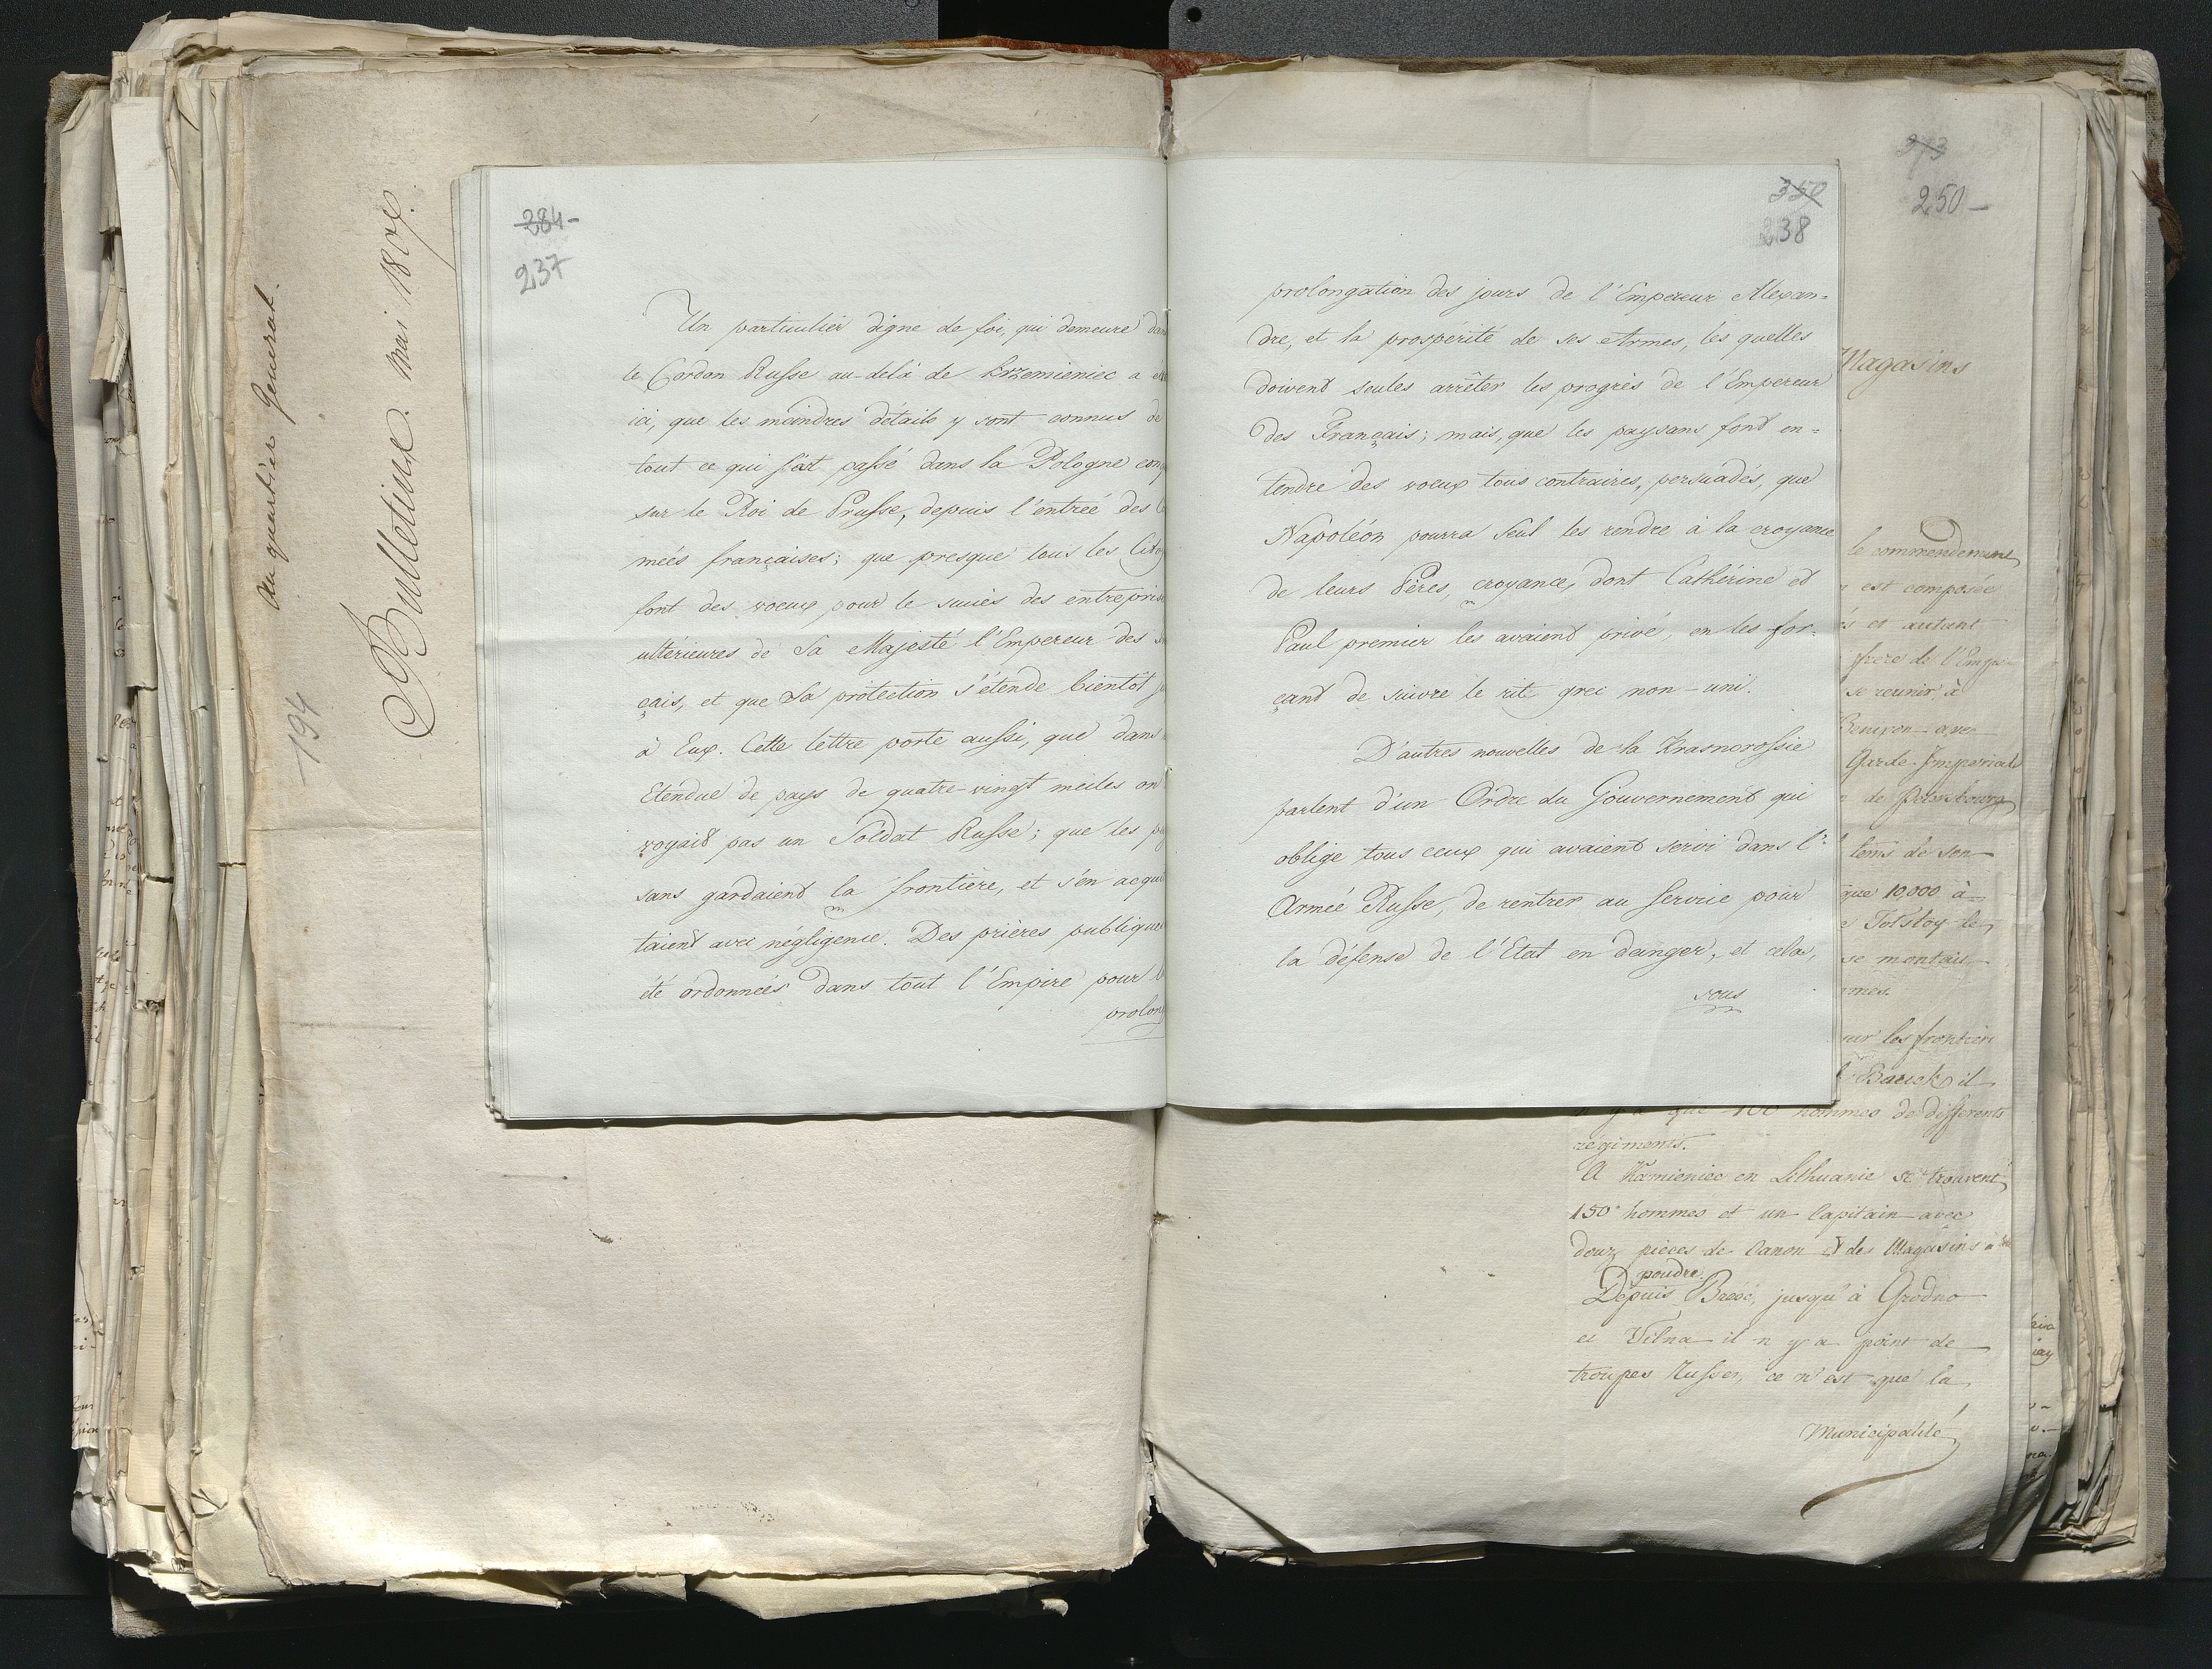 Au quartier General.
Bulletins. Mai 1807.
194
284-
237
Un particulier digne de foi, qui demeure dan
le Cordon Russe au-delà de Krzemieniec a
ici, que les moindres détails y sont connus de
tout ce qui s'est passé dans la Pologne conq
sur le Roi de Prusse, depuis l'entrée des
mées françaises; que presque tous les Cito
font des voeux pour le succès des entrepris
ultérieures de Sa Majesté l'Empereur des
çais, et que Sa protection s'étende bientôt
à Eux. Cette lettre porte aussi, que dans
Etendue de pays de quatre-vingt meiles on
voyait pas un Soldat Russe; que les
sans gardaient la frontière, et s'en acqui
taient avec négligence. Des prières publiques
été ordonnées dans tout l'Empire pour
prolon
350
238
prolongation des jours de l'Empereur Alexan=
dre, et la prospérité de ses Armes, les quelles
doivent seules arrêter les progrès de l'Empereur
des Français; mais, que les paysans font en=
tendre des voeux tous contraires, persuadés, que
Napoléon pourra seul les rendre à la croyance
de leurs Pères, croyance, dont Cathérine et
Paul premier les avaient privé, en les for=
çant de suivre le rite grec non-uni.
D'autres nouvelles de la Krasnorossie
parlent d'un Ordre du Gouvernement qui
oblige tous ceux qui avaient servi dans l'=
Armée Russe, de rentrer au service pour
la défense de l'Etat en danger, et cela,
sous
273
250-
Magasins
le commendement
est composée
és et autant
frere de l'Empe
se reunir à
avec
Garde-Imperiale
de Petersbourg
tems de son
que 10,000 à
Tolstoy le
se montait
mes.
sur les frontièr
il
n'y a que 100 hommes de differents
régiments.
A Kamieniec en Lithuanie se trouvent
150 hommes et un Capitain avec
douz pièces de Canon et des Magasins à
poudre.
Depuis Brésc, jusqu'à Grodno
et Vilna il n'y a point de
troupes Russes, ce n'est que la
Municipalité